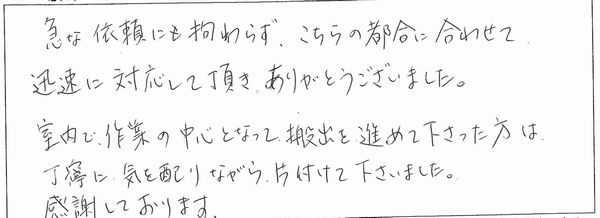 急な依頼にも拘わらず、こちらの都合に合わせて
迅速に対応して頂き、ありがとうございました。
室内で、作業の中心となって、搬出を進めて下さった方は、
丁寧に、気を配りながら、片付けて下さいました。
感謝しております。